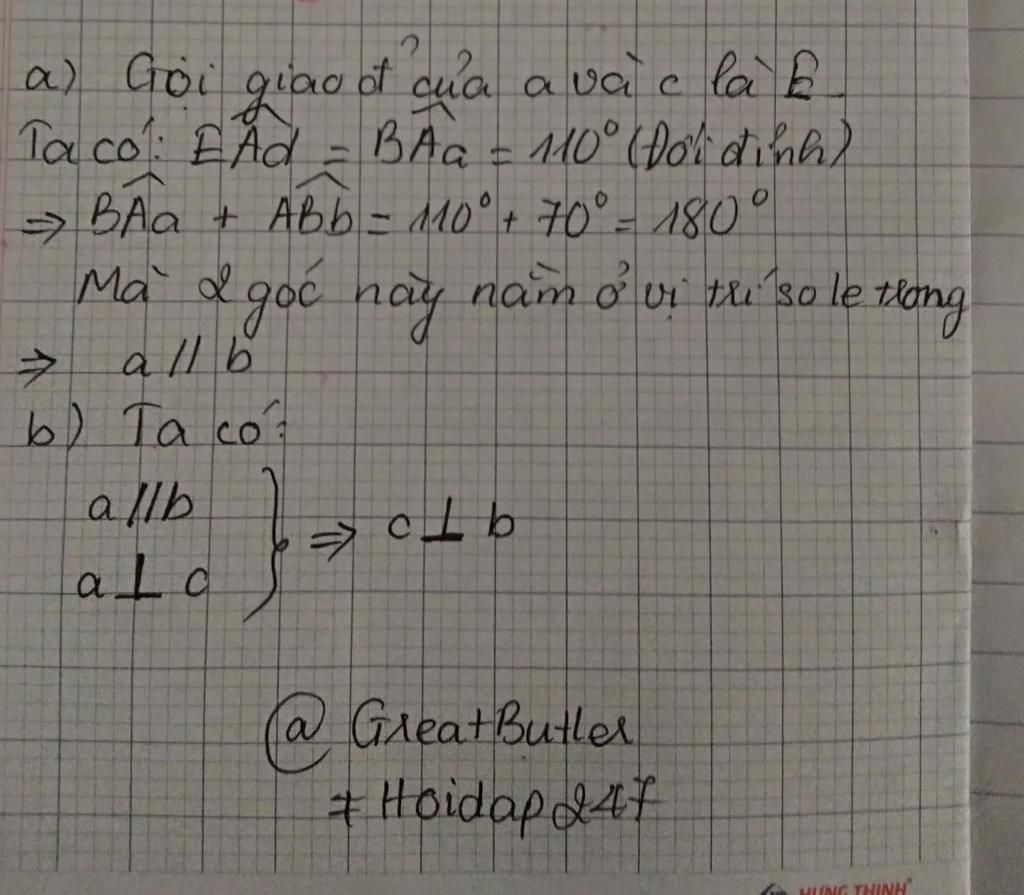 a) Gọi giao đ' của a và c là E
Ta có: EÂd = BÂa = 110° (Đối đỉnh)
⇒ BÂa + AB̂b = 110° + 70° = 180°
Mà 2 góc này nằm ở vị trí so le trong
⇒ a // b
b) Ta có:
a//b
a ⊥ c } ⇒ c ⊥ b
@ GreatButler
# Hoidap247
HƯNG THỊNH